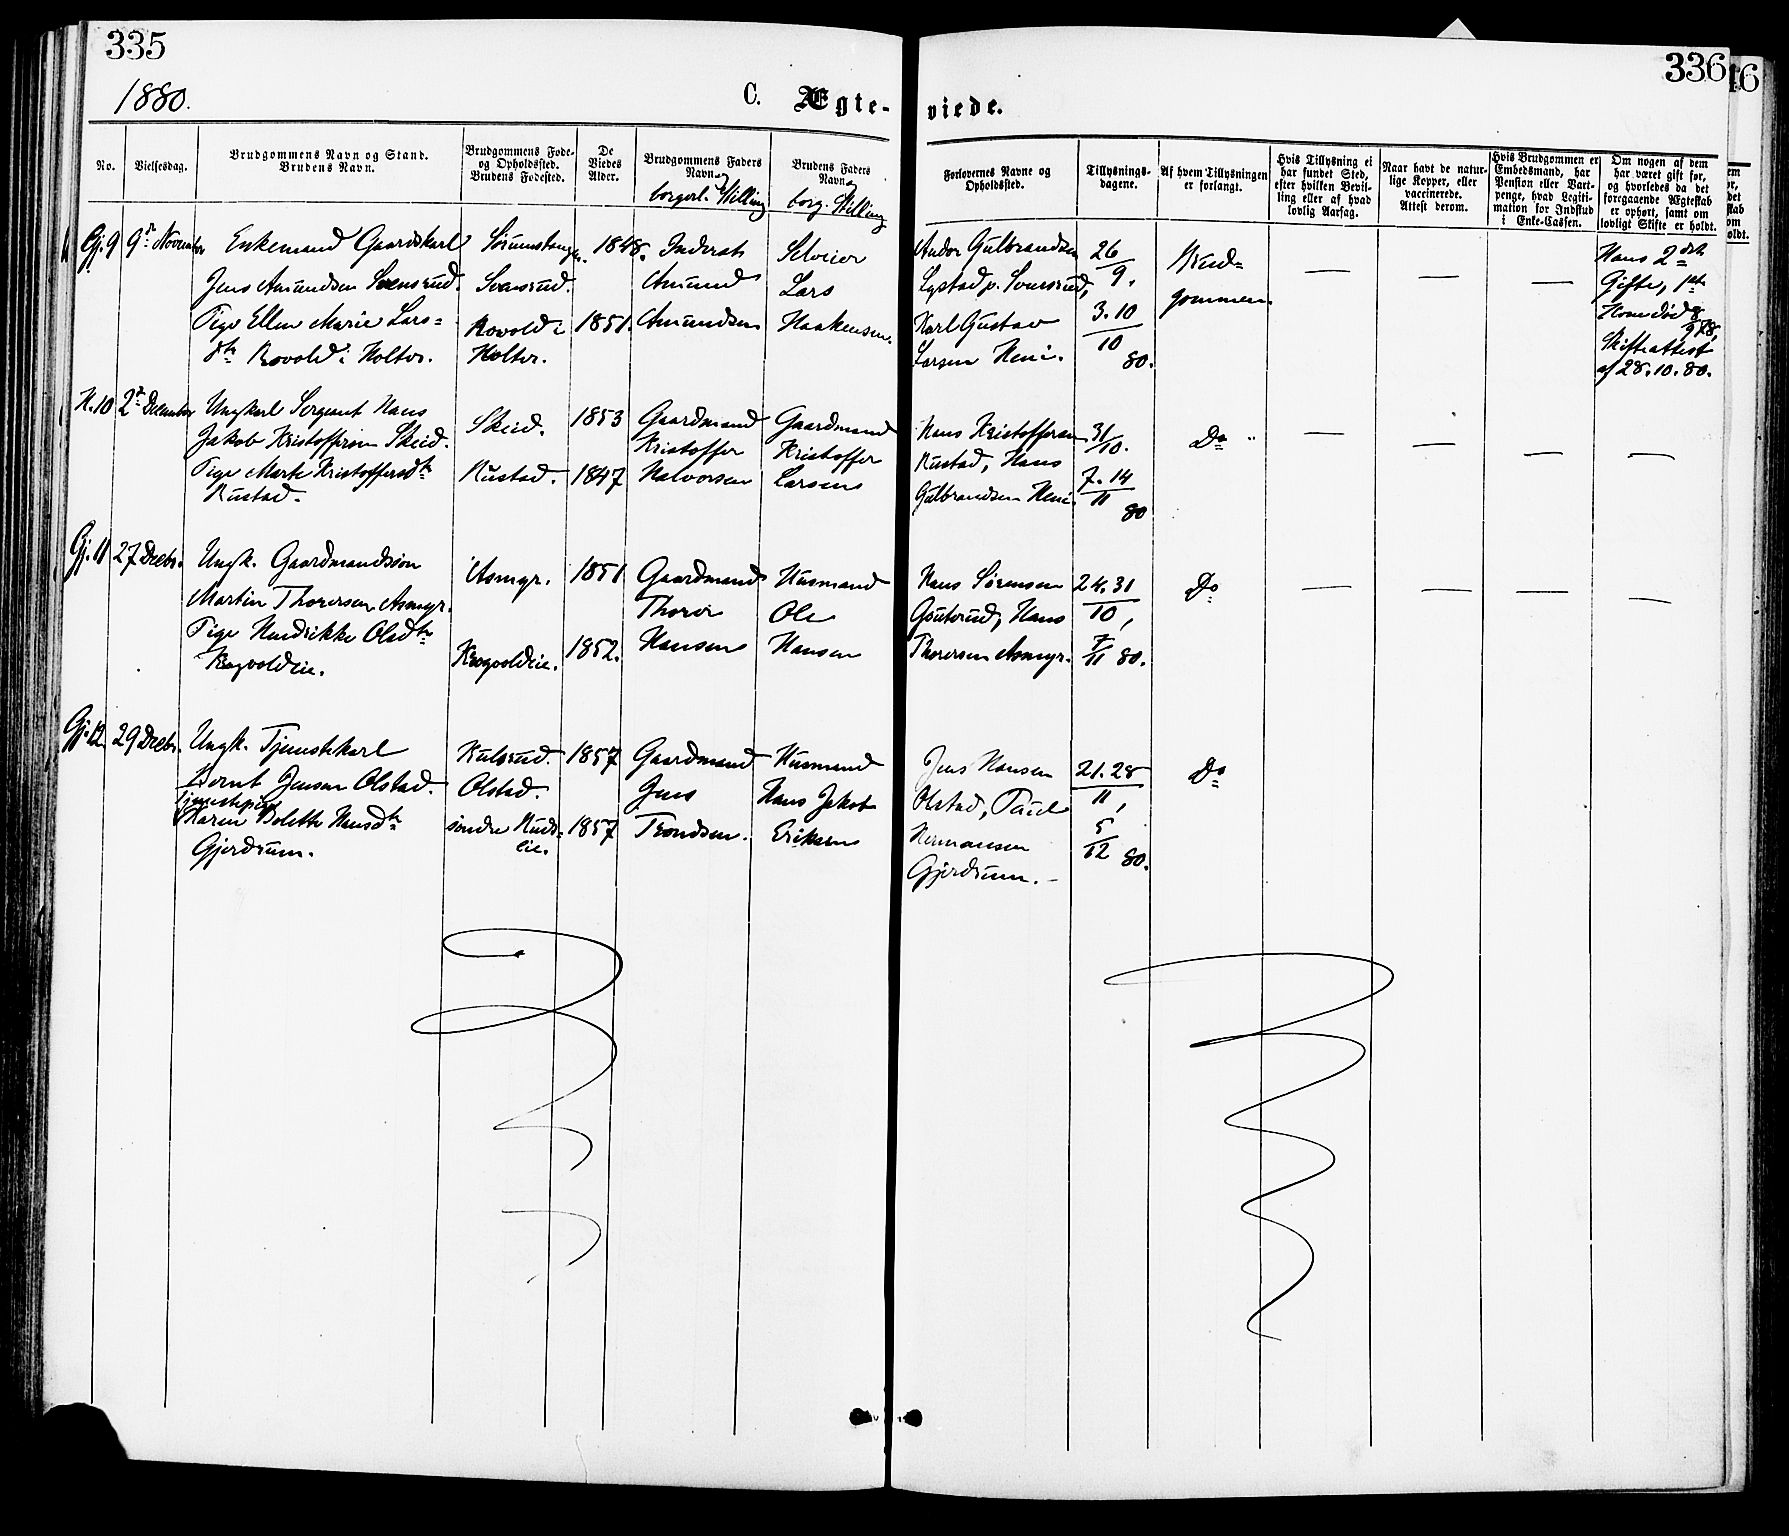 335
1880.
C. Ægte-
No.
Vielsesdag.
Brudgommens Navn og Stand.
Brudens Navn.
Brudgommens Føde-
og Opholdssted.
Brudens Fødested.
De
Viedes
Alder.
Brudgommens Faders
Navn
borgerl. Stilling
Brudens Faders
Navn
borg. Stilling
Gj. 9
9de November
Enkemand Gaardskarl
Jens Amundsen Svensrud.
Pige Ellen Marie Lars=
dtr Rovold i Holter.
Svensrud.
Rovold i
Holter.
1848.
1851.
Inderst
Amund
Amundsen
Selveier
Lars
Haakensen.
H. 10
2den December
Ungkarl Sergeant Hans
Jakob Kristoffersen Skeid.
Pige Marte Kristoffersdtr
Rustad.
Skeid.
Rustad.
1853
1847
Gaardmand
Kristoffer
Halvorsen
Gaardmand
Kristoffer
Larsen
Gj. 11
27 Decbr.
Ungk. Gaardmandssøn
Martin Thorersen Asmyr.
Pige Hendrikke Olsdtr
Krogvoldeie.
Asmyr.
Krogvoldeie.
1851
1852.
Gaardmand
Thorer
Hansen
Husmand
Ole
Hansen
Gj. 12.
29 Decbr.
Ungk. Tjenstekarl
Bernt Jensen Olstad.
tjenstepige
Karen Bolette Hansdtr
Gjerdrum.
Kulsrud.
Olstad.
søndre Huds-
eie.
1857
1857
Gaardmand
Jens
Trondsen.
Husmand
Hans Jakob
Eriksen
336
viede.
Forlovernes Navne og
Opholdssted.
Tillysnings-
dagene.
Af hvem Tillysningen
er forlangt.
Hvis Tillysning ei
har fundet Sted,
efter hvilken Bevil-
ling eller af hvad
lovlig Aarsag.
Naar havt de natur-
lige Kopper, eller
vaccinerede.
Attest derom.
Hvis Brudgommen er
Embedsmand, har
Pension eller Vart-
penge, hvad Legiti-
mation for Indskud
i Enke-Cassen.
Om nogen af dem
har været gift før,
og hvorledes da det
foregaaende Ægteskab
er ophørt, samt om
lovligt Skifte er holdt.
Gulbrandsen
Lystad p. Svensrud,
Karl Gustav
Larsen Heni.
26
9.
3. 10
10
80.
Brud=
gommen.
Hans 2det
Gifte, 1ste
Kone død 8
9 78,
Skifteattest
af 28.10.80.
Hans Kristoffersen
Rustad, Hans
Gulbrandsen Heni.
31
10.
7. 14
11
80
Do
Hans Sørensen
Gsuterud, Hans
Thorersen Asmyr.
24. 31
10,
7
11 80.
Do
Jens Hansen
Olstad, Paul
Hermansen
Gjerdrum. –
21. 28
11,
5
12 80.
Do